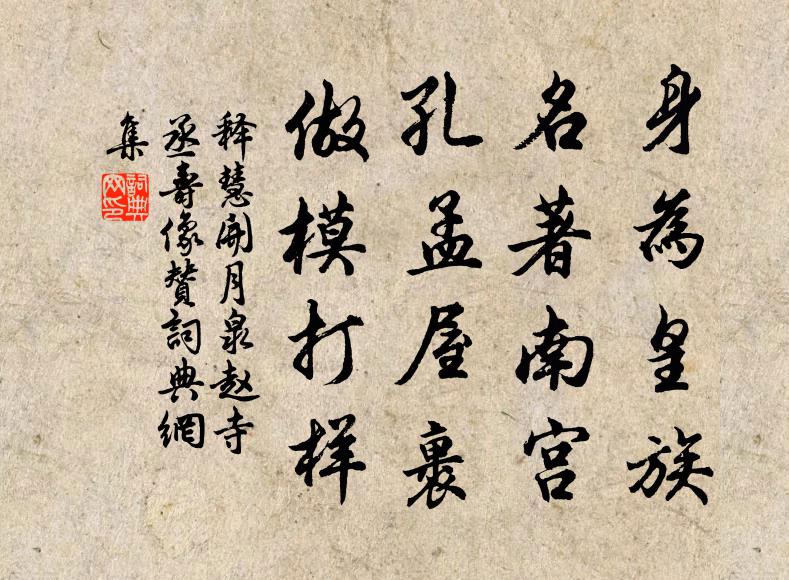 身為皇族
名著南宮
孔孟屋裏
做模打样
释慧開月泉赵寺
丞壽像贊詞典網
集
詞典
网印